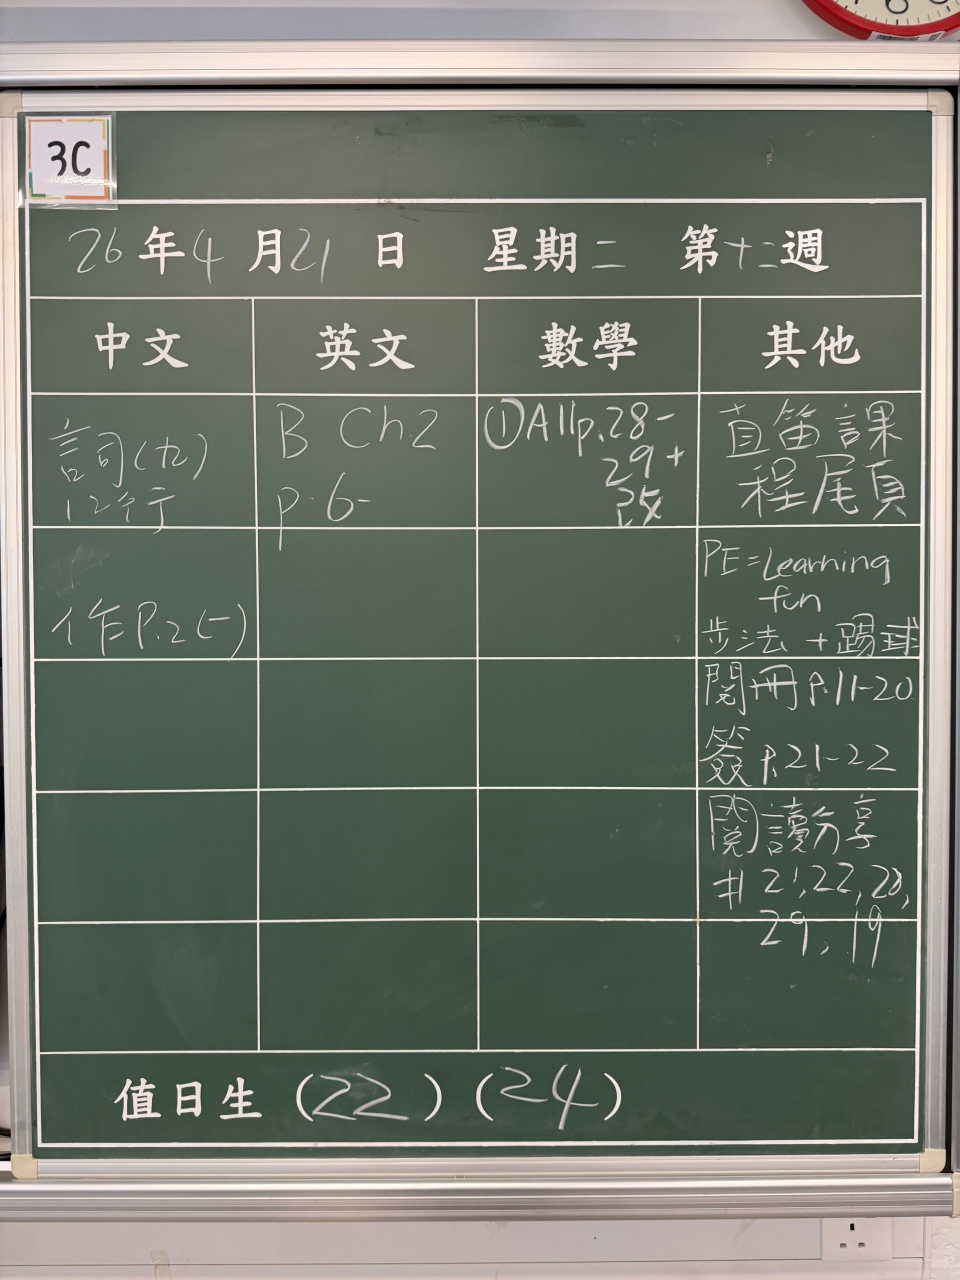 3C
26年4月21日 星期二 第十二週
中文 英文 數學 其他
詞(九)
12行
作P.2(一)
B Ch2
p.6
①A11p.28-
29+
改
直笛課
程尾頁
PE=Learning
fun
步法+踢球
閱冊P.11-20
簽P.21-22
閱讀分享
#21,22,20,
29,19
值日生(22)(24)